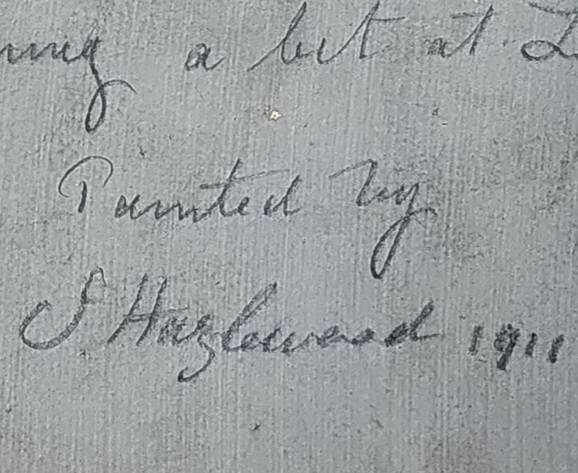 a bit at
Painted by
S Hazlewood 1911